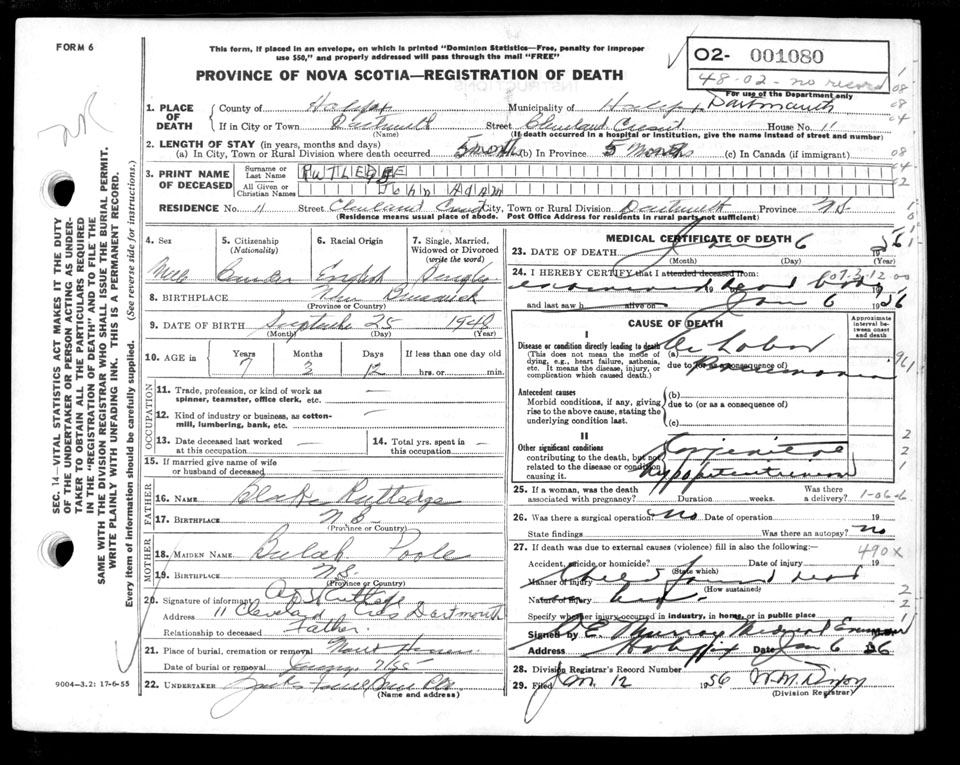 FORM 6
This form, if placed in an envelope, on which is printed "Dominion Statistics—Free, penalty for improper
use $50," and properly addressed will pass through the mail "FREE"
PROVINCE OF NOVA SCOTIA—REGISTRATION OF DEATH
02- 001080
48-02- no record
For use of the Department only
1. PLACE OF DEATH
County of Halifax Municipality of Dartmouth
If in City or Town Dartmouth Street Cleveland House No. 11
(Name) (If death occurred in a hospital or institution, give the name instead of street and number)
2. LENGTH OF STAY (in years, months and days)
(a) In City, Town or Rural Division where death occurred 5 months (b) In Province 5 months (c) In Canada (if immigrant)
3. PRINT NAME OF DECEASED
Surname or Last Name RUTLEDGE
All Given or Christian Names John Adam
RESIDENCE No. 11 Street Cleveland City, Town or Rural Division Dartmouth Province NS
(Residence means usual place of abode. Post Office Address for residents in rural parts not sufficient)
4. Sex
5. Citizenship (Nationality)
6. Racial Origin
7. Single, Married, Widowed or Divorced (write the word)
Male English Single
8. BIRTHPLACE New Brunswick
(Province or Country)
9. DATE OF BIRTH 25 1948
(Month) (Day) (Year)
10. AGE in Years Months Days If less than one day old
7 3 12 hrs. or min.
OCCUPATION
11. Trade, profession, or kind of work as spinner, teamster, office clerk, etc. —
12. Kind of industry or business, as cotton-mill, lumbering, bank, etc. —
13. Date deceased last worked at this occupation —
14. Total yrs. spent in this occupation —
15. If married give name of wife or husband of deceased
FATHER
16. NAME Rutledge
17. BIRTHPLACE N.B.
(Province or Country)
MOTHER
18. MAIDEN NAME Beulah Poole
19. BIRTHPLACE N.S.
(Province or Country)
20. Signature of informant
Address 11 Cleveland Cres Dartmouth
Relationship to deceased Father
21. Place of burial, cremation or removal
Date of burial or removal 7/55
22. UNDERTAKER
(Name and address)
MEDICAL CERTIFICATE OF DEATH
23. DATE OF DEATH 6 1956
(Month) (Day) (Year)
24. I HEREBY CERTIFY that I attended deceased from:
examined dead body
19
and last saw h alive on Jan 6 1956
CAUSE OF DEATH
Approximate interval between onset and death
I
Disease or condition directly leading to death
(This does not mean the mode of dying, e.g., heart failure, asthenia, etc. It means the disease, injury, or complication which caused death.)
(a) Lobar
due to (or as a consequence of) Pneumonia
Antecedent causes
Morbid conditions, if any, giving rise to the above cause, stating the underlying condition last.
(b)
due to (or as a consequence of)
(c)
II
Other significant conditions
contributing to the death, but not related to the disease or condition causing it.
25. If a woman, was the death associated with pregnancy? Duration weeks. Was there a delivery?
26. Was there a surgical operation? No Date of operation 19
State findings Was there an autopsy? no
27. If death was due to external causes (violence) fill in also the following:—
490X
Accident, suicide or homicide? Date of injury 19
(State which)
Manner of injury found dead
(How sustained)
Nature of injury
Specify whether injury occurred in industry, in home, or in public place
Signed by Murray Medical Examiner
Address Halifax Date Jan 6 56
28. Division Registrar's Record Number
29. Filed Jan. 12 1956
(Division Registrar)
9004—3.2: 17-6-55
SEC. 14—VITAL STATISTICS ACT MAKES IT THE DUTY
OF THE UNDERTAKER OR PERSON ACTING AS UNDER-
TAKER TO OBTAIN ALL THE PARTICULARS REQUIRED
IN THE "REGISTRATION OF DEATH" AND TO FILE THE
SAME WITH THE DIVISION REGISTRAR WHO SHALL ISSUE THE BURIAL PERMIT.
WRITE PLAINLY WITH UNFADING INK. THIS IS A PERMANENT RECORD.
Every item of information should be carefully supplied. (See reverse side for instructions.)